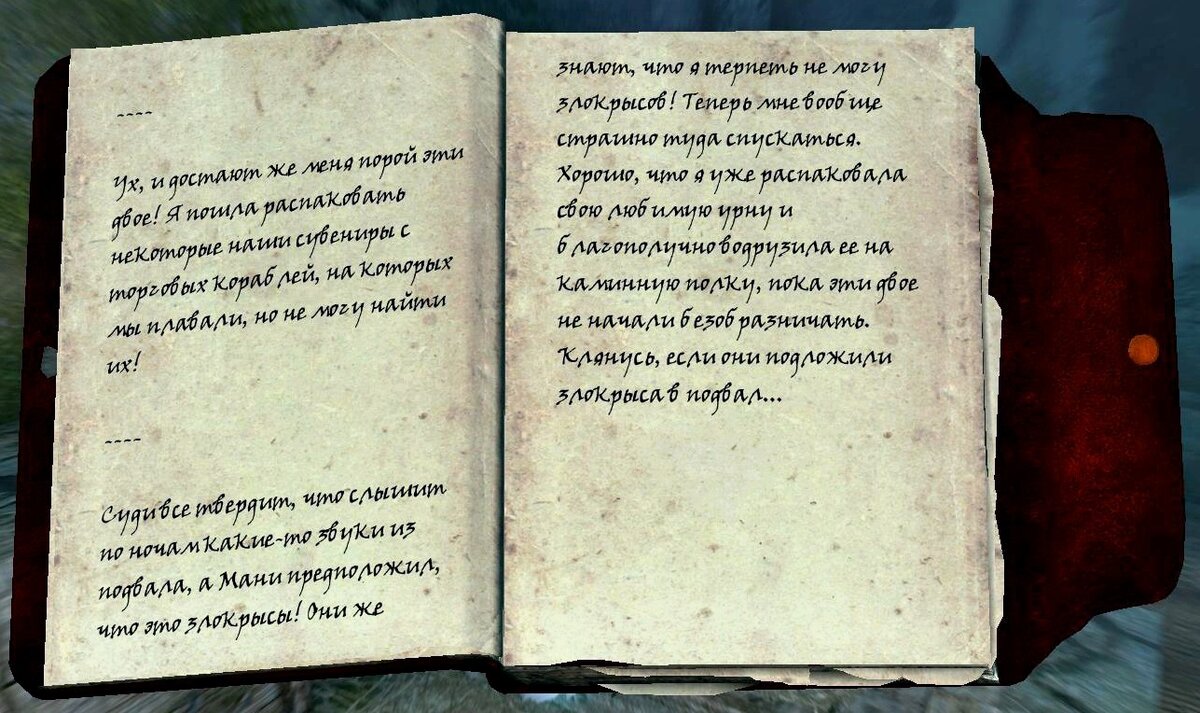 ----
Ух, и достают же меня порой эти
двое! Я пошла распаковать
некоторые наши сувениры с
торговых кораблей, на которых
мы плавали, но не могу найти
их!
----
Суди все твердит, что слышит
по ночам какие-то звуки из
подвала, а Мани предположил,
что это злокрысы! Они же
знают, что я терпеть не могу
злокрысов! Теперь мне вообще
страшно туда спускаться.
Хорошо, что я уже распаковала
свою любимую урну и
благополучно водрузила ее на
каминную полку, пока эти двое
не начали безобразничать.
Клянусь, если они подложили
злокрыса в подвал...